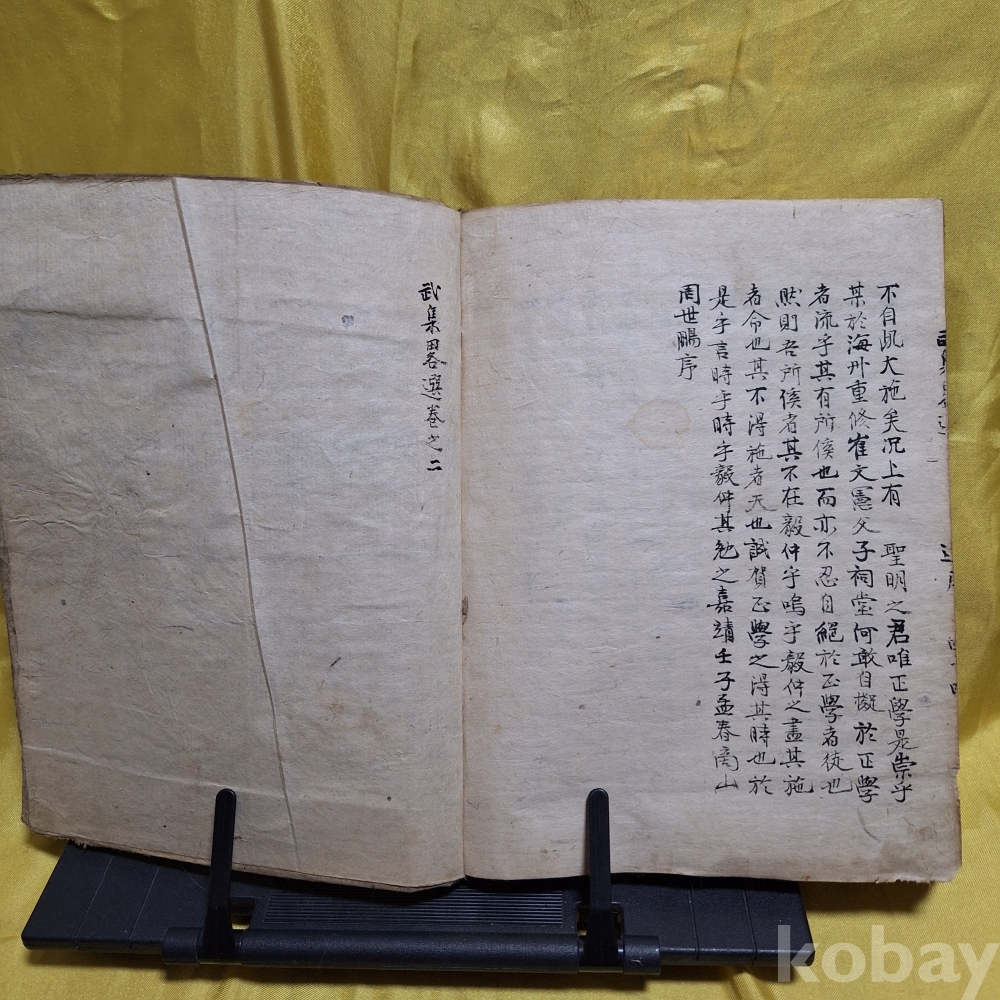 不自此大施矣況上有 聖明之君唯正學是崇乎
某於海州重修崔文憲父子祠堂何敢自擬於正學
者流乎其有所俟也而亦不忍自絕於正學者徒也
然則吾所俟者其不在毅仲乎嗚乎毅仲之盡其施
者命也其不得施者天也誠賀正學之得其時也於
是乎言時乎時乎毅仲其勉之嘉靖壬子孟春商山
周世鵬序
武集畧選卷之二
kobay